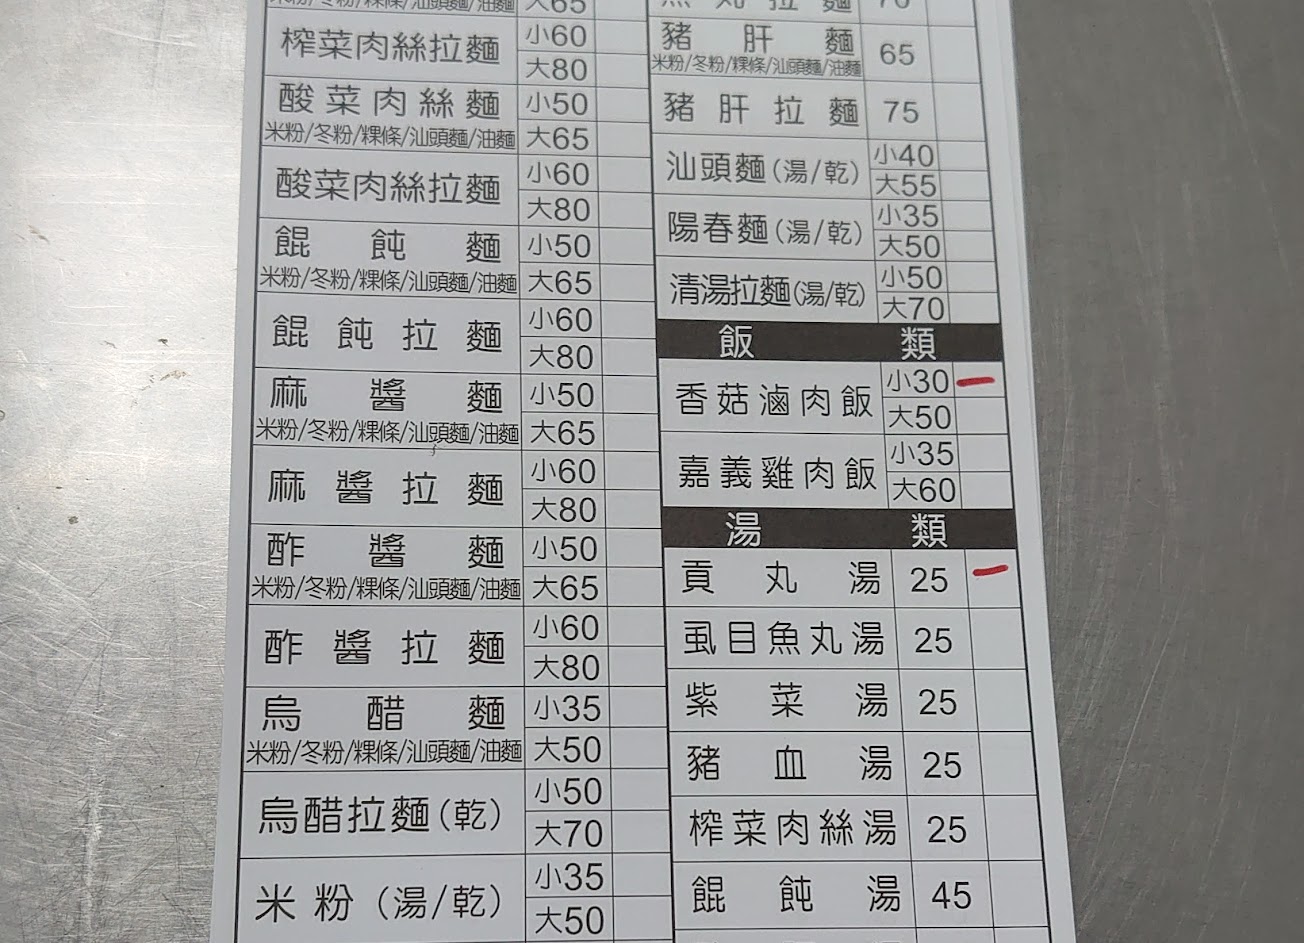 米粉/冬粉/粿條/汕頭麵/油麵 大65
榨菜肉絲拉麵 小60
大80
酸菜肉絲麵 小50
米粉/冬粉/粿條/汕頭麵/油麵 大65
酸菜肉絲拉麵 小60
大80
餛飩麵 小50
米粉/冬粉/粿條/汕頭麵/油麵 大65
餛飩拉麵 小60
大80
麻醬麵 小50
米粉/冬粉/粿條/汕頭麵/油麵 大65
麻醬拉麵 小60
大80
酢醬麵 小50
米粉/冬粉/粿條/汕頭麵/油麵 大65
酢醬拉麵 小60
大80
烏醋麵 小35
米粉/冬粉/粿條/汕頭麵/油麵 大50
烏醋拉麵(乾) 小50
大70
米粉(湯/乾) 小35
大50
魚丸拉麵 70
豬肝麵 65
米粉/冬粉/粿條/汕頭麵/油麵
豬肝拉麵 75
汕頭麵(湯/乾) 小40
大55
陽春麵(湯/乾) 小35
大50
清湯拉麵(湯/乾) 小50
大70
飯類
香菇滷肉飯 小30
大50
嘉義雞肉飯 小35
大60
湯類
貢丸湯 25
虱目魚丸湯 25
紫菜湯 25
豬血湯 25
榨菜肉絲湯 25
餛飩湯 45